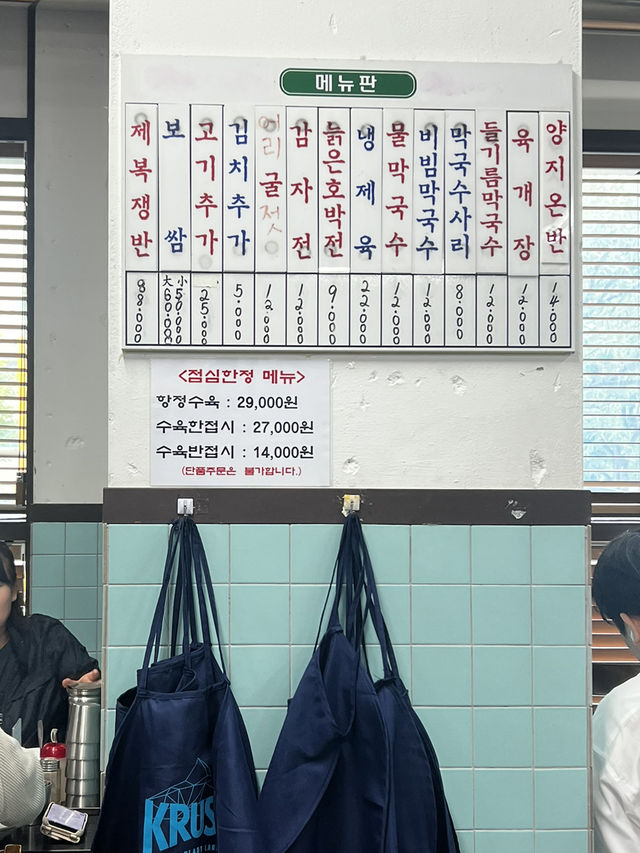 메뉴판
제복쟁반 88.000
보쌈 大 60.000 小 50.000
고기추가 25.000
김치추가 5.000
어리굴젓 12.000
감자전 12.000
늙은호박전 9.000
냉제육 22.000
물막국수 12.000
비빔막국수 12.000
막국수사리 8.000
들기름막국수 12.000
육개장 12.000
양지온반 14.000
<점심한정 메뉴>
항정수육 : 29,000원
수육한접시 : 27,000원
수육반접시 : 14,000원
(단품주문은 불가합니다.)
KRUS